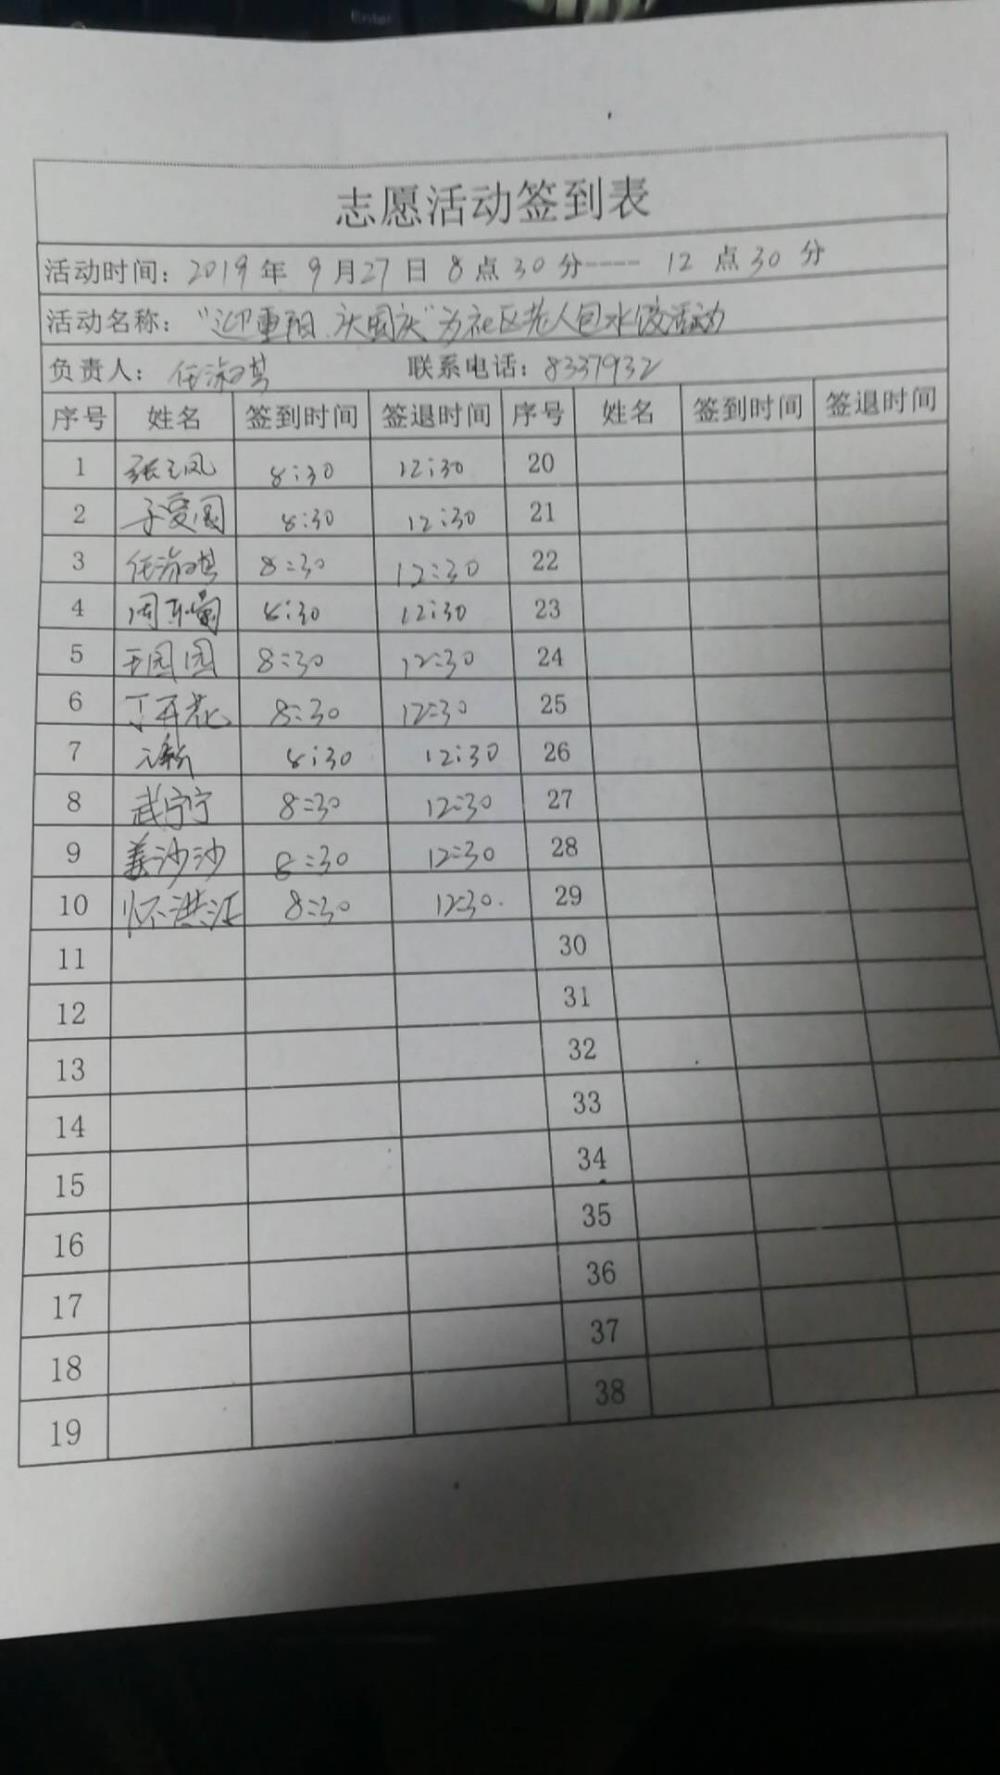 志愿活动签到表
活动时间：2019年 9月27日 8点30分---- 12点30分
活动名称："迎重阳、庆国庆"为社区老人包水饺活动
负责人：任淑琪 联系电话：8337932
序号 姓名 签到时间 签退时间 序号 姓名 签到时间 签退时间
1 8:30 12:30 20
2 8:30 12:30 21
3 任淑琪 8:30 12:30 22
4 8:30 12:30 23
5 王园园 8:30 12:30 24
6 8:30 12:30 25
7 8:30 12:30 26
8 武宁宁 8:30 12:30 27
9 姜沙沙 8:30 12:30 28
10 怀洪江 8:30 12:30. 29
11 30
12 31
13 32
14 33
15 34
16 35
17 36
18 37
19 38